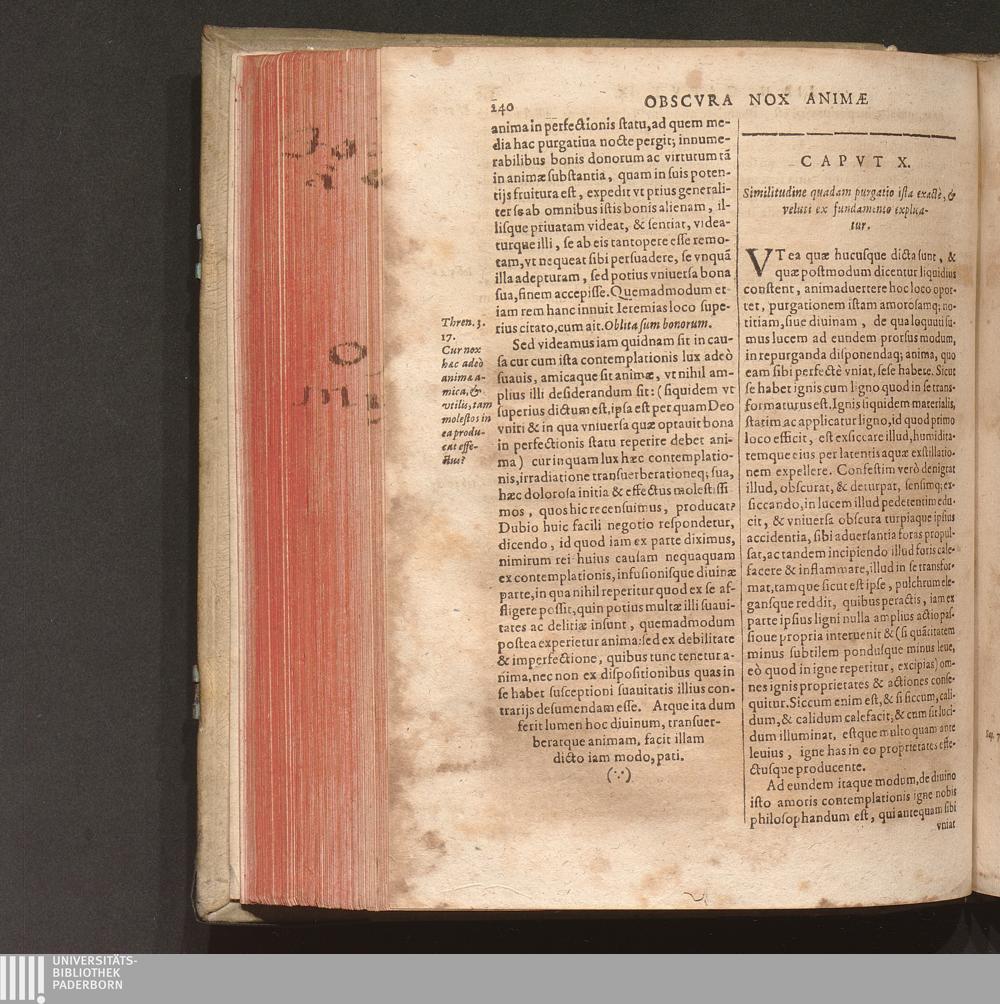 240
OBSCVRA NOX ANIMÆ
anima in perfectionis statu, ad quem me-
dia hac purgatiua nocte pergit; innume-
rabilibus bonis donorum ac virtutum tā
in animæ substantia, quam in suis poten-
tijs fruitura est, expedit vt prius generali-
ter se ab omnibus istis bonis alienam, il-
lisque priuatam videat, & sentiat, videa-
turque illi, se ab eis tantopere esse remo-
tam, vt nequeat sibi persuadere, se vnquā
illa adepturam, sed potius vniuersa bona
sua, finem accepisse. Quemadmodum et-
iam rem hanc innuit Ieremias loco supe-
rius citato, cum ait. Oblita sum bonorum.
Sed videamus iam quidnam sit in cau-
sa cur cum ista contemplationis lux adeò
suauis, amicaque sit animæ, vt nihil am-
plius illi desiderandum sit: (siquidem vt
superius dictum est, ipsa est per quam Deo
vniti & in qua vniuersa quæ optauit bona
in perfectionis statu reperire debet ani-
ma) cur inquam lux hæc contemplatio-
nis, irradiatione transuerberationeq; sua,
hæc dolorosa initia & effectus molestissi
mos, quos hic recensuimus, producat?
Dubio huic facili negotio respondetur,
dicendo, id quod iam ex parte diximus,
nimirum rei huius causam nequaquam
ex contemplationis, infusionisque diuinæ
parte, in qua nihil reperitur quod ex se af-
fligere possit, quin potius multæ illi suaui-
tates ac delitiæ insunt, quemadmodum
postea experietur anima: sed ex debilitate
& imperfectione, quibus tunc tenetur a-
nima, nec non ex dispositionibus quas in
se habet susceptioni suauitatis illius con-
trarijs desumendam esse. Atque ita dum
ferit lumen hoc diuinum, transuer-
beratque animam, facit illam
dicto iam modo, pati.
(∵)
Thren. 3.
17.
Cur nox
hæc adeò
animæ a-
mica, &
vtilis, tam
molestos in
ea produ-
cat effe-
ctus?
CAPVT X.
Similitudine quadam purgatio ista exactè, &
veluti ex fundamento explica-
tur.
VT ea quæ hucusque dicta sunt, &
quæ postmodum dicentur liquidius
constent, animaduertere hoc loco opor-
tet, purgationem istam amorosamq; no-
titiam, siue diuinam, de qua loquuti su-
mus lucem ad eundem prorsus modum,
in repurganda disponendaq; anima, quo
eam sibi perfectè vniat, sese habere. Sicut
se habet ignis cum ligno quod in se trans-
formaturus est. Ignis siquidem materialis,
statim ac applicatur ligno, id quod primo
loco efficit, est exsiccare illud, humidita-
temque eius per latentis aquæ exstillatio-
nem expellere. Confestim verò denigrat
illud, obscurat, & deturpat, sensimq; ex-
siccando, in lucem illud pedetentim edu-
cit, & vniuersa obscura turpiaque ipsius
accidentia, sibi aduersantia foras propul-
sat, ac tandem incipiendo illud foris cale-
facere & inflammare, illud in se transfor-
mat, tamque sicut est ipse, pulchrum ele-
gansque reddit, quibus peractis, iam ex
parte ipsius ligni nulla amplius actio pas-
sioue propria interuenit & (si quātitatem
minus subtilem pondusque minus leue,
eò quod in igne reperitur, excipias) om-
nes ignis proprietates & actiones conse-
quitur. Siccum enim est, & si siccum, cali-
dum, & calidum calefacit; & cum sit luci-
dum illuminat, estque multo quam ante
leuius, igne has in eo proprietates effe-
ctusque producente.
Ad eundem itaque modum, de diuino
isto amoris contemplationis igne nobis
philosophandum est, qui antequam sibi
vniat
UNIVERSITÄTS-
BIBLIOTHEK
PADERBORN